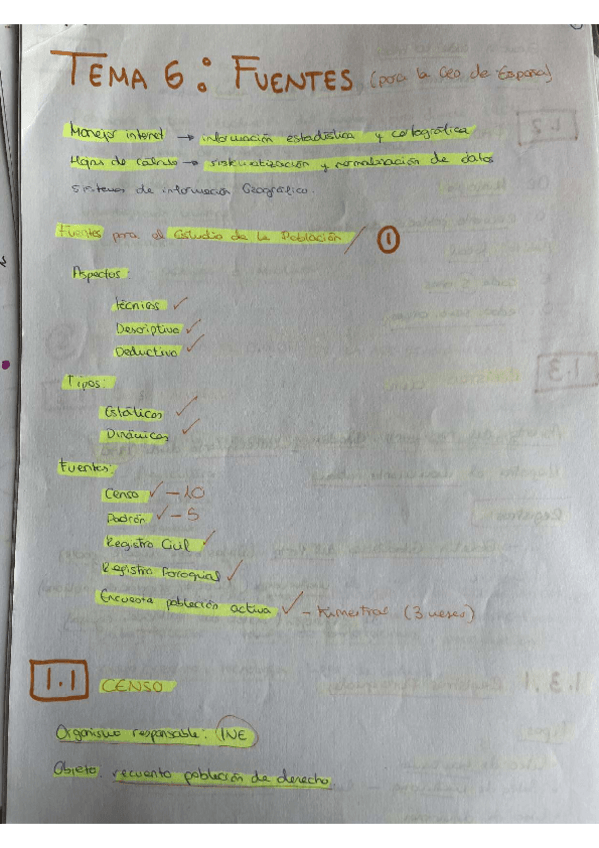 TEMA 6: FUENTES (para la Geo de España)
Manejo internet → información estadística y cartográfica
Hojas de cálculo → sistematización y normalización de datos
Sistemas de información Geográfico.
Fuentes para el Estudio de la Población / 1
Aspectos:
técnicos ✓
Descriptivo ✓
Deductivo ✓
Tipos:
Estáticos ✓
Dinámicos ✓
Fuentes:
Censo ✓ - 10
Padrón ✓ - 5
Registro Civil ✓
Registro Parroquial ✓
Encuesta población activa ✓ - trimestral (3 meses)
1.1 CENSO
Organismo responsable: INE
Objeto: recuento población de derecho